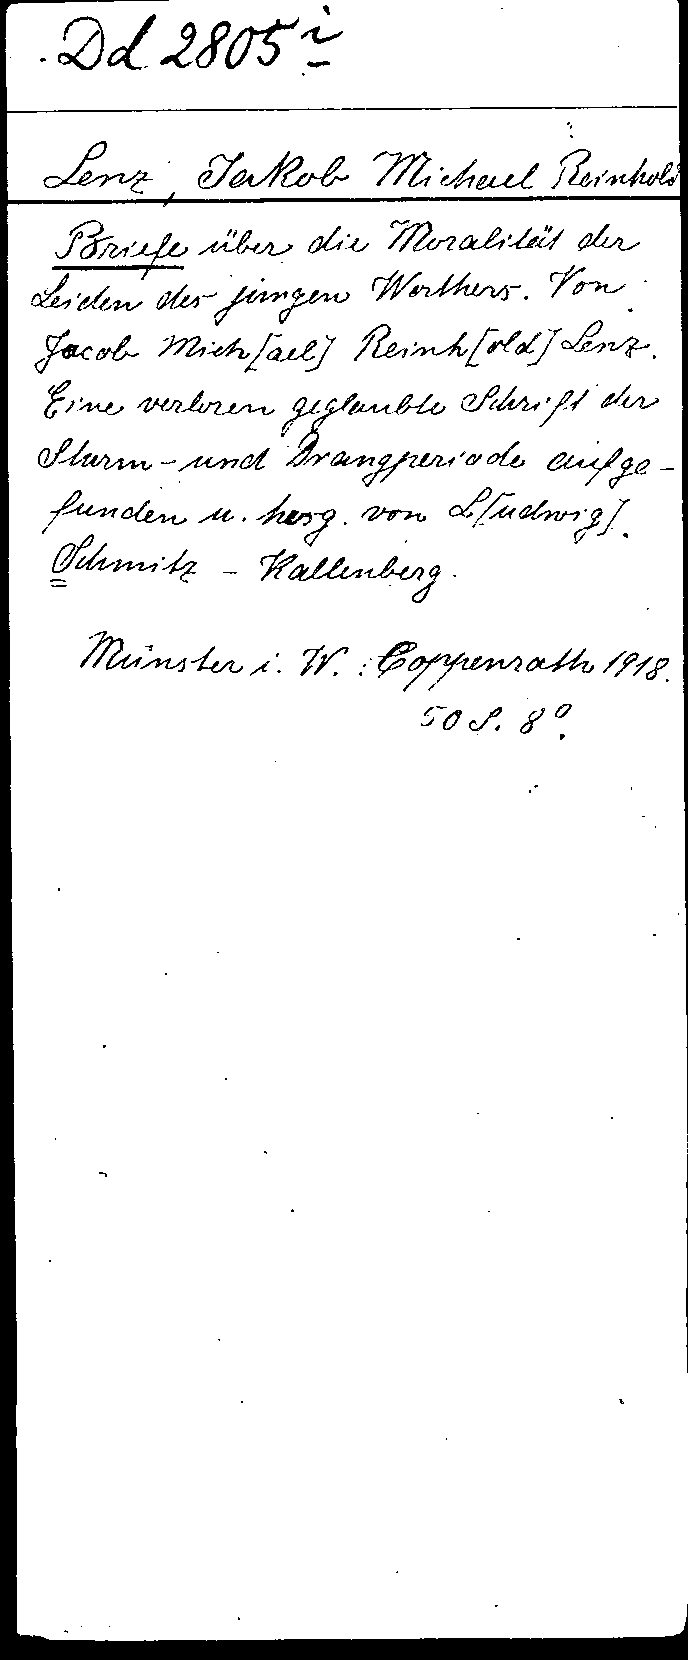 Dd 2805 i
Lenz, Jakob Michael Reinhold
Briefe über die Moralität der
Leiden des jungen Werthers. Von
Jacob Mich[ael] Reinh[old] Lenz.
Eine verloren geglaubte Schrift der
Sturm- und Drangperiode aufge-
funden u. hrsg. von L[udwig]
Schmitz - Kallenberg.
Münster i. W. : Coppenrath 1918.
50 S. 8°.